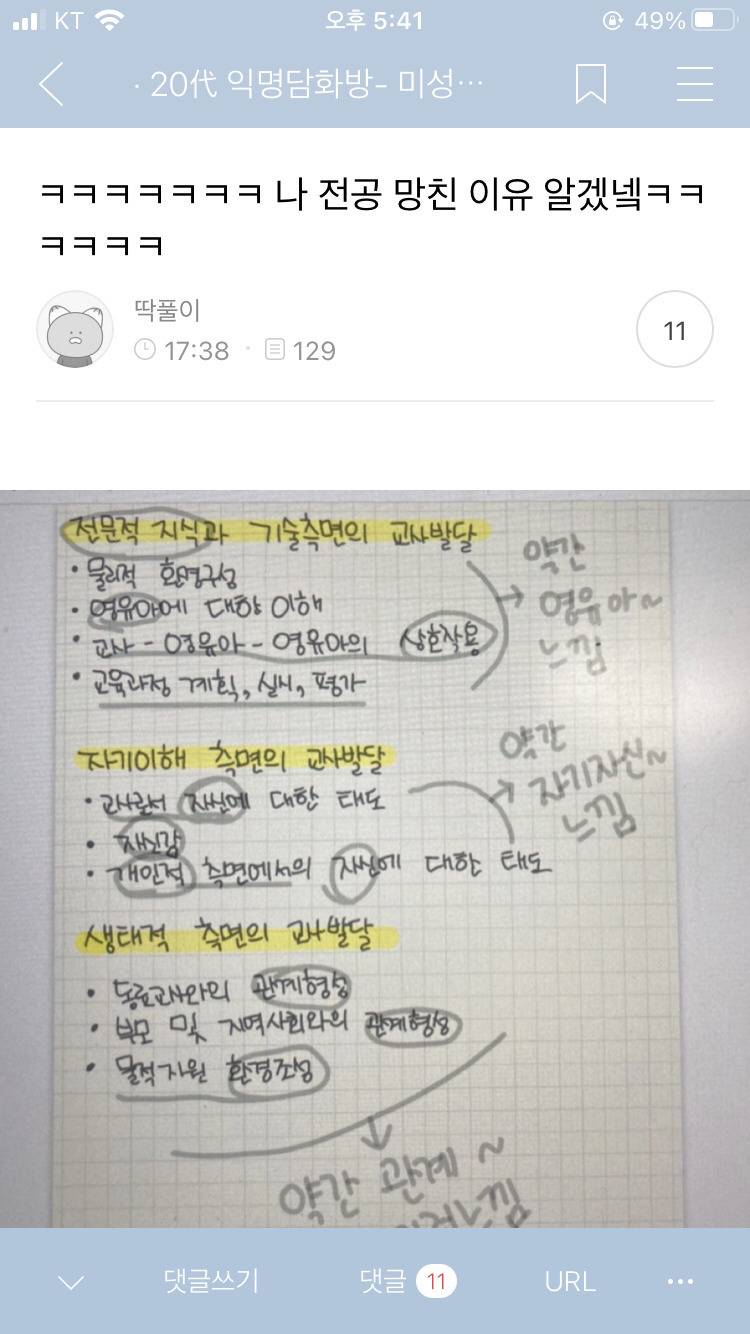 KT 오후 5:41 49%
· 20代 익명담화방- 미성···
ㅋㅋㅋㅋㅋㅋㅋ 나 전공 망친 이유 알겠넼ㅋㅋ
ㅋㅋㅋㅋ
딱풀이
17:38 · 129
11
전문적 지식과 기술측면의 교사발달
• 물리적 환경구성
• 영유아에 대한 이해
• 교사 - 영유아 - 영유아의 상호작용
• 교육과정 계획, 실시, 평가
→ 약간
영유아~
느낌
자기이해 측면의 교사발달
• 교사로서 자신에 대한 태도
• 자신감
• 개인적 측면에서의 자신에 대한 태도
→ 약간
자기자신~
느낌
생태적 측면의 교사발달
• 동료교사와의 관계형성
• 부모 및 지역사회와의 관계형성
• 물적자원 환경조성
약간 관계~
느낌
댓글쓰기 댓글 11 URL ···